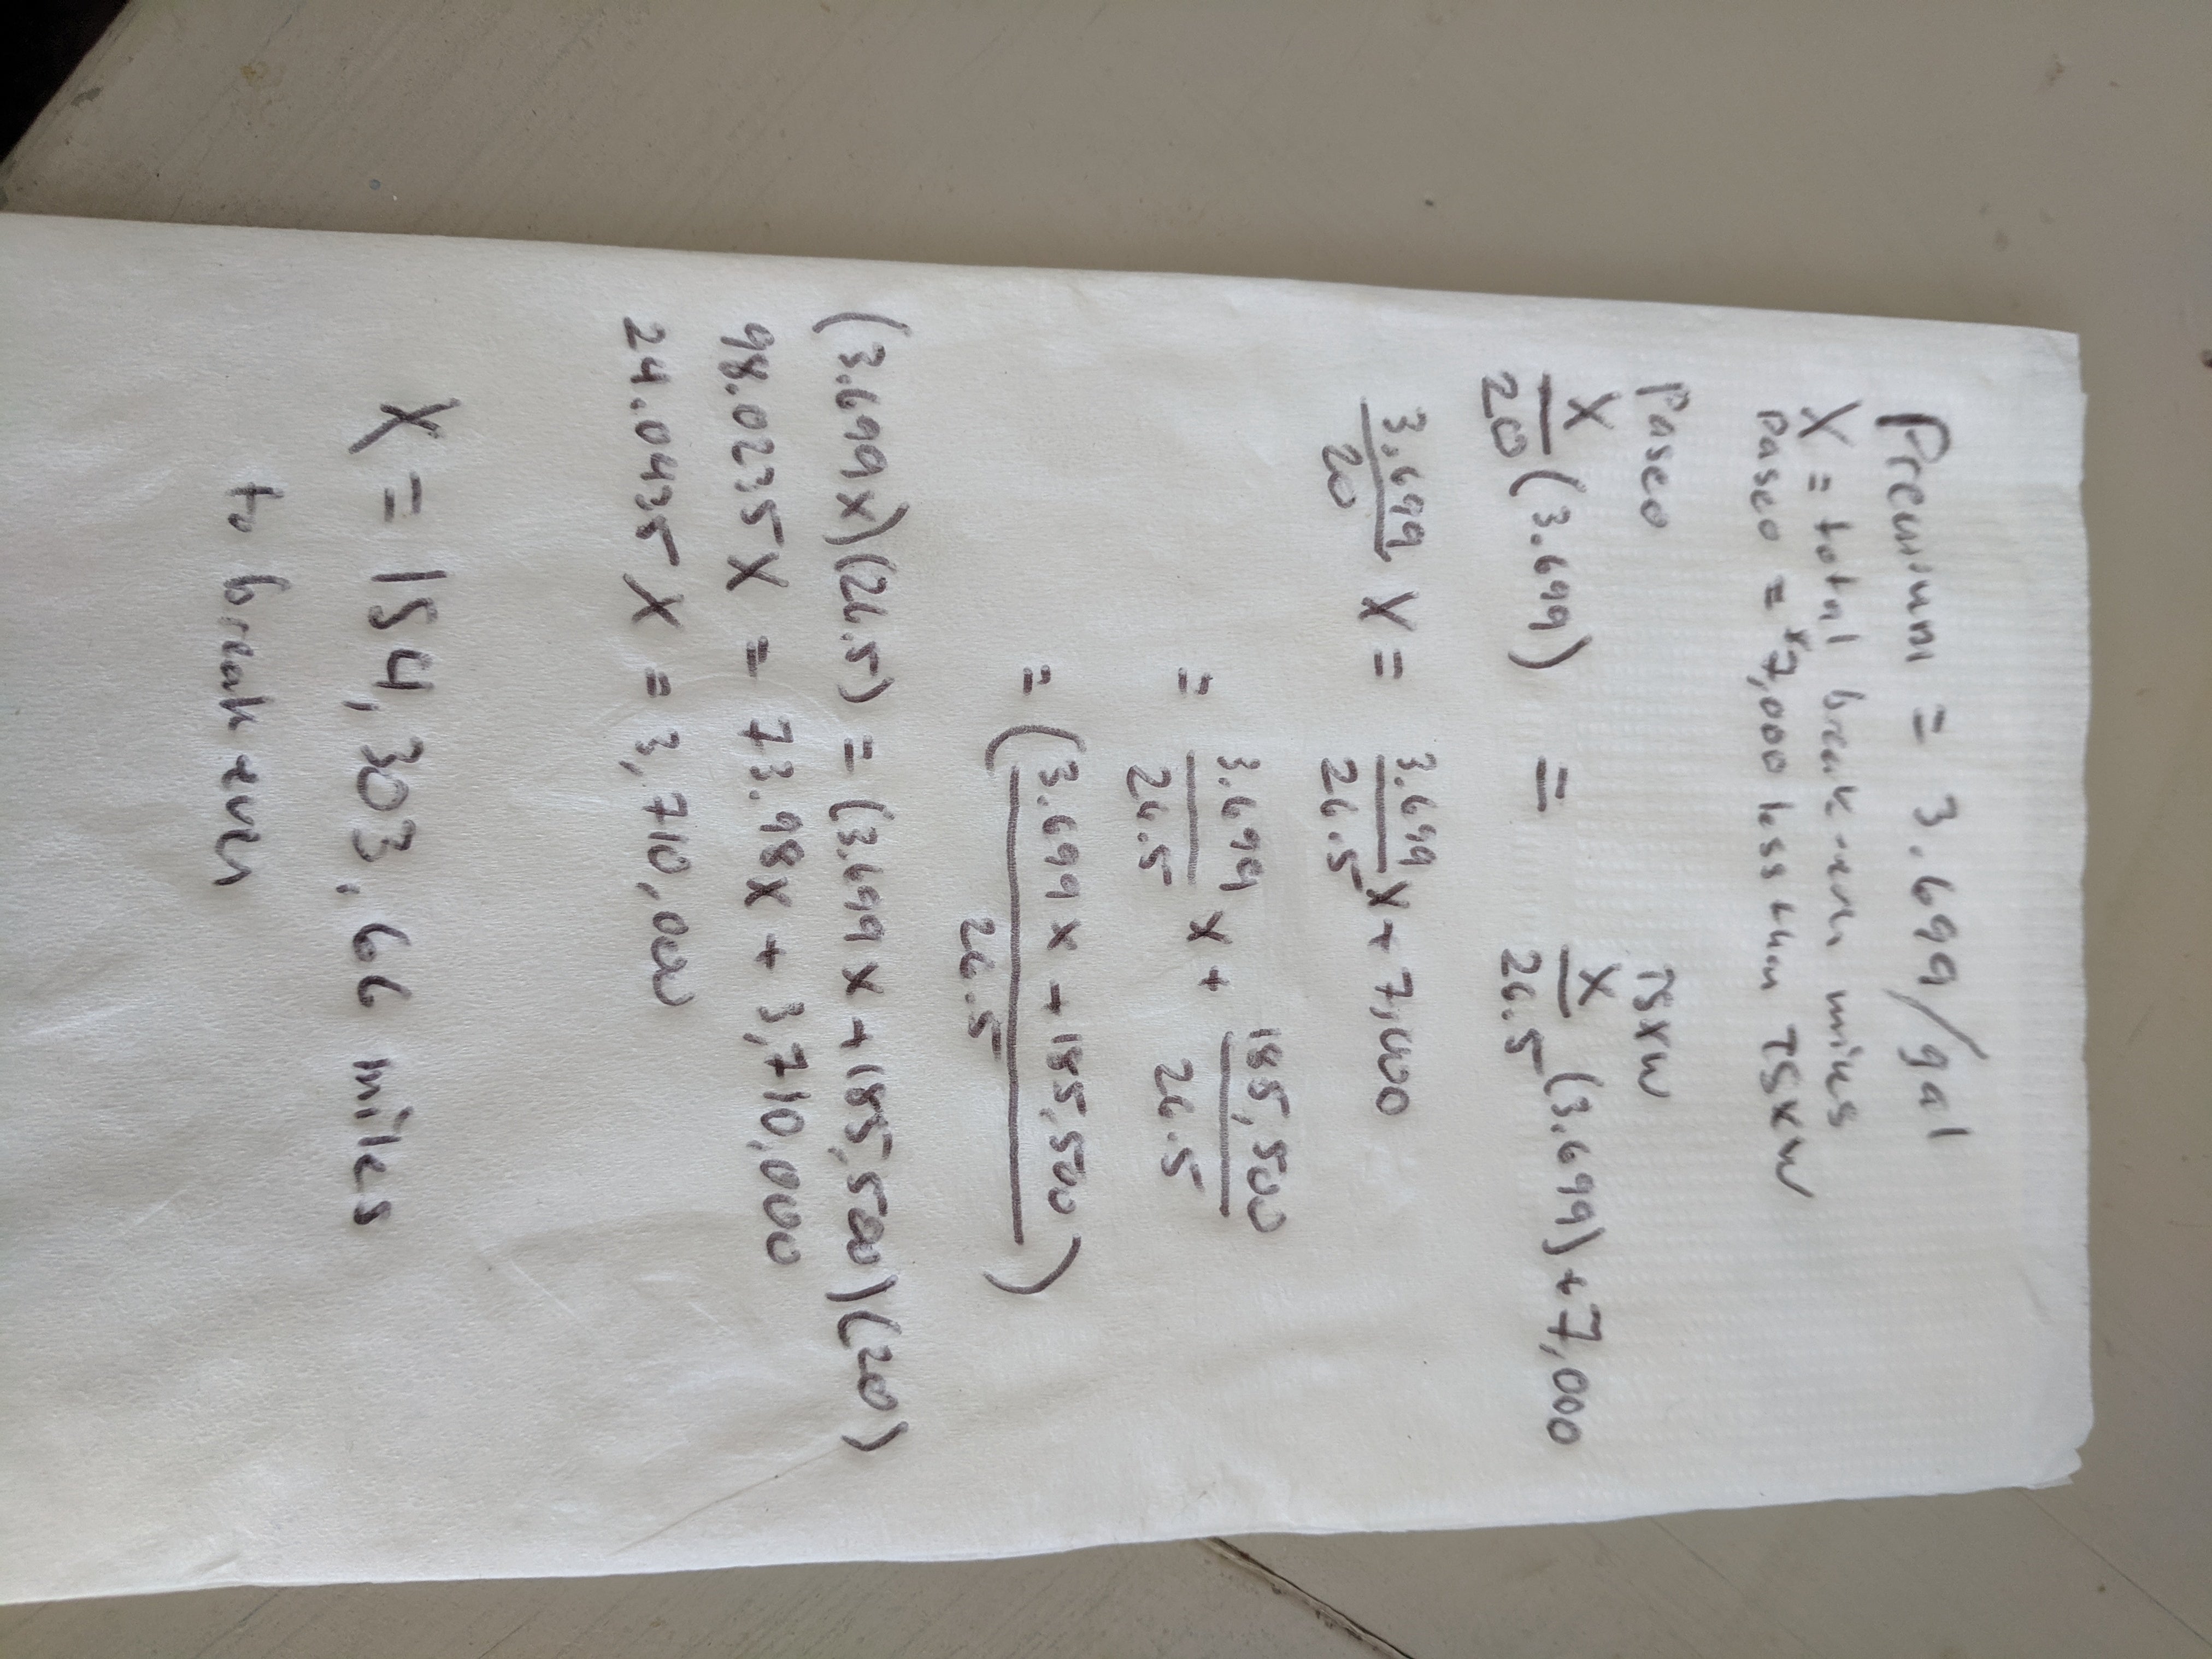 Premium = 3.699/gal
X = total break-even miles
Paseo = $7,000 less than TSXW
Paseo TSXW
X/20 (3.699) = X/26.5 (3.699) + 7,000
3.699/20 X = 3.699/26.5 X + 7,000
= 3.699/26.5 X + 185,500/26.5
= (3.699 X + 185,500 / 26.5)
(3.699 X)(26.5) = (3.699 X + 185,500)(20)
98.0235 X = 73.98 X + 3,710,000
24.0435 X = 3,710,000
X = 154,303.66 miles
to break even